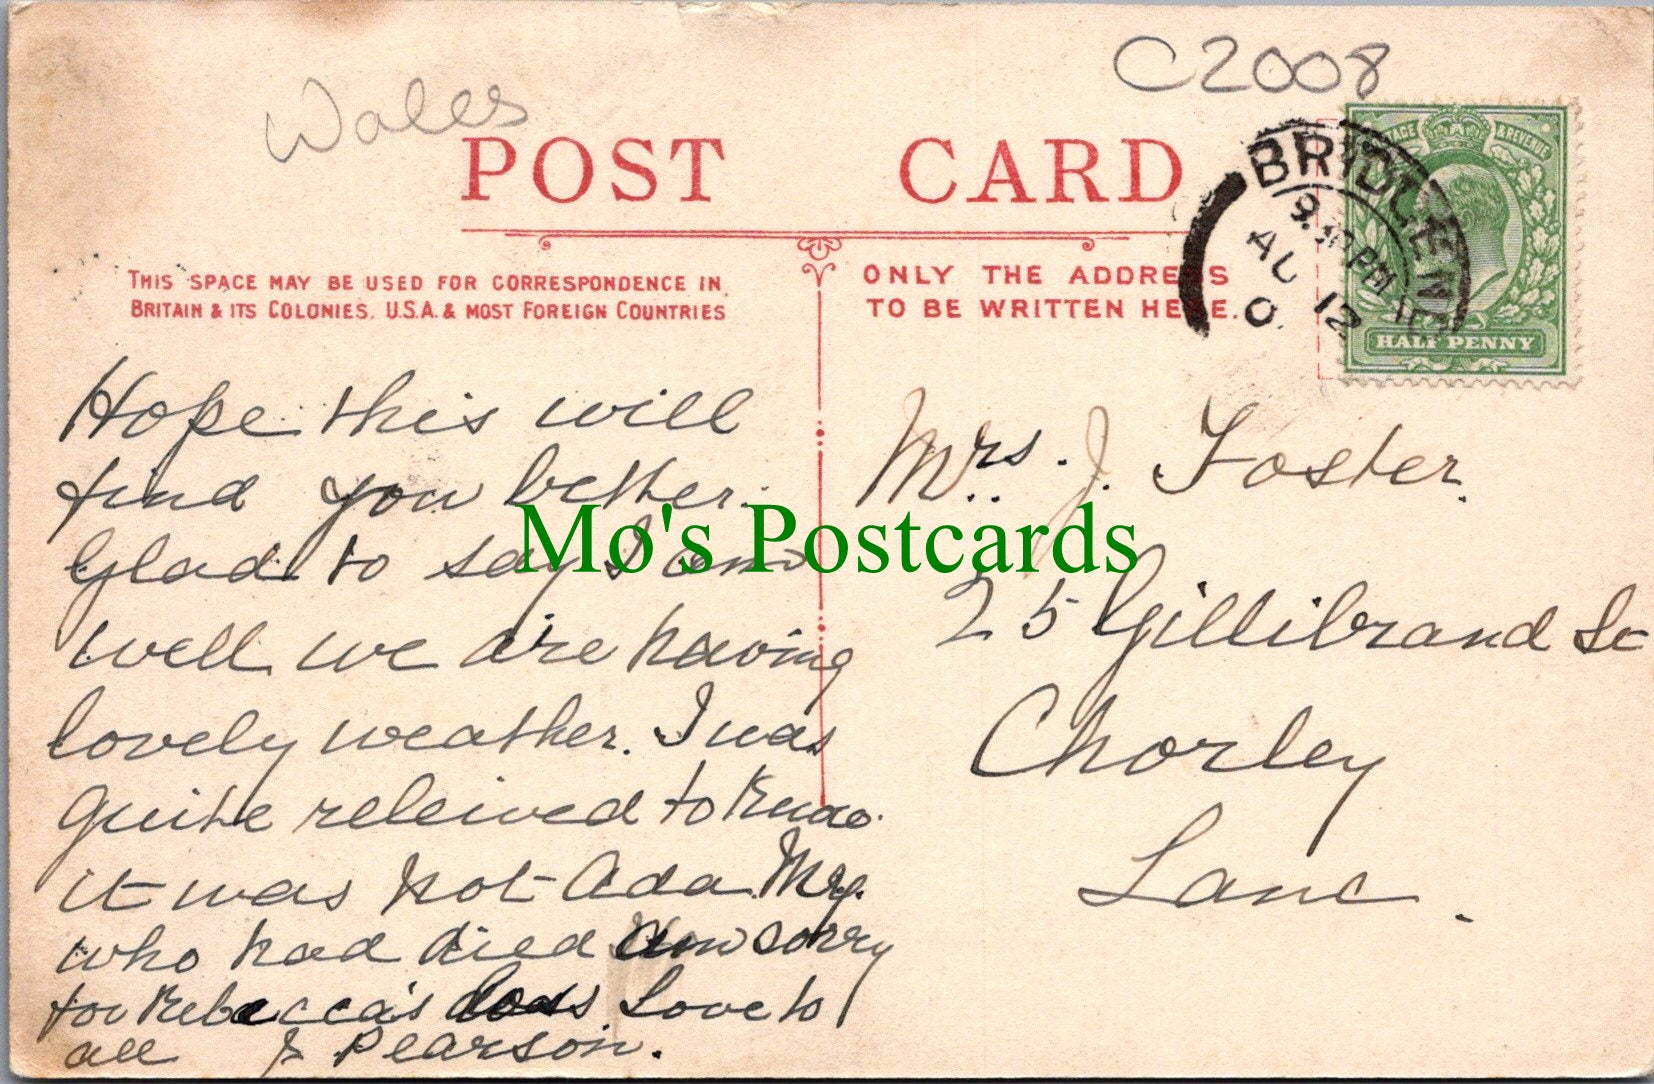 Wales
C2008
POST CARD
THIS SPACE MAY BE USED FOR CORRESPONDENCE IN
BRITAIN & ITS COLONIES. U.S.A. & MOST FOREIGN COUNTRIES
ONLY THE ADDRESS
TO BE WRITTEN HERE.
POSTAGE & REVENUE
HALF PENNY
BRIDGEND
PM
AU 12
Hope this will
find you better.
Glad to say I am
well we are having
lovely weather. I was
quite releived to know
it was not Ada
who had died am sorry
for Rebecca's loss. Love to
all J Pearson.
Mrs. J. Foster.
25 Gillibrand St
Chorley
Lanc.
Mo's Postcards